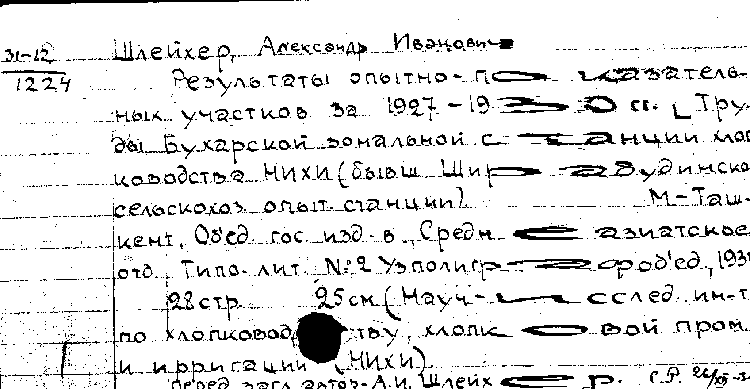 31-12
1224
Шлейхер, Александр Иванович
Результаты опытно-показатель-
ных участков за 1927-1930 гг. [Тру-
ды Бухарской зональной станции хлоп
ководства НИХИ (бывш Ширабудинско
сельскохоз опыт. станции)] М-Таш-
кент, Объед гос изд-в, Средне азиатское
отд. Типо-лит. №2 Узполиграфоб'ед, 193
28 стр. 25 см (Науч- исслед. ин-т
по хлопководству, хлопковой пром.
и ирригации (НИХИ)
Перед загл. автор- А.И. Шлейхер.